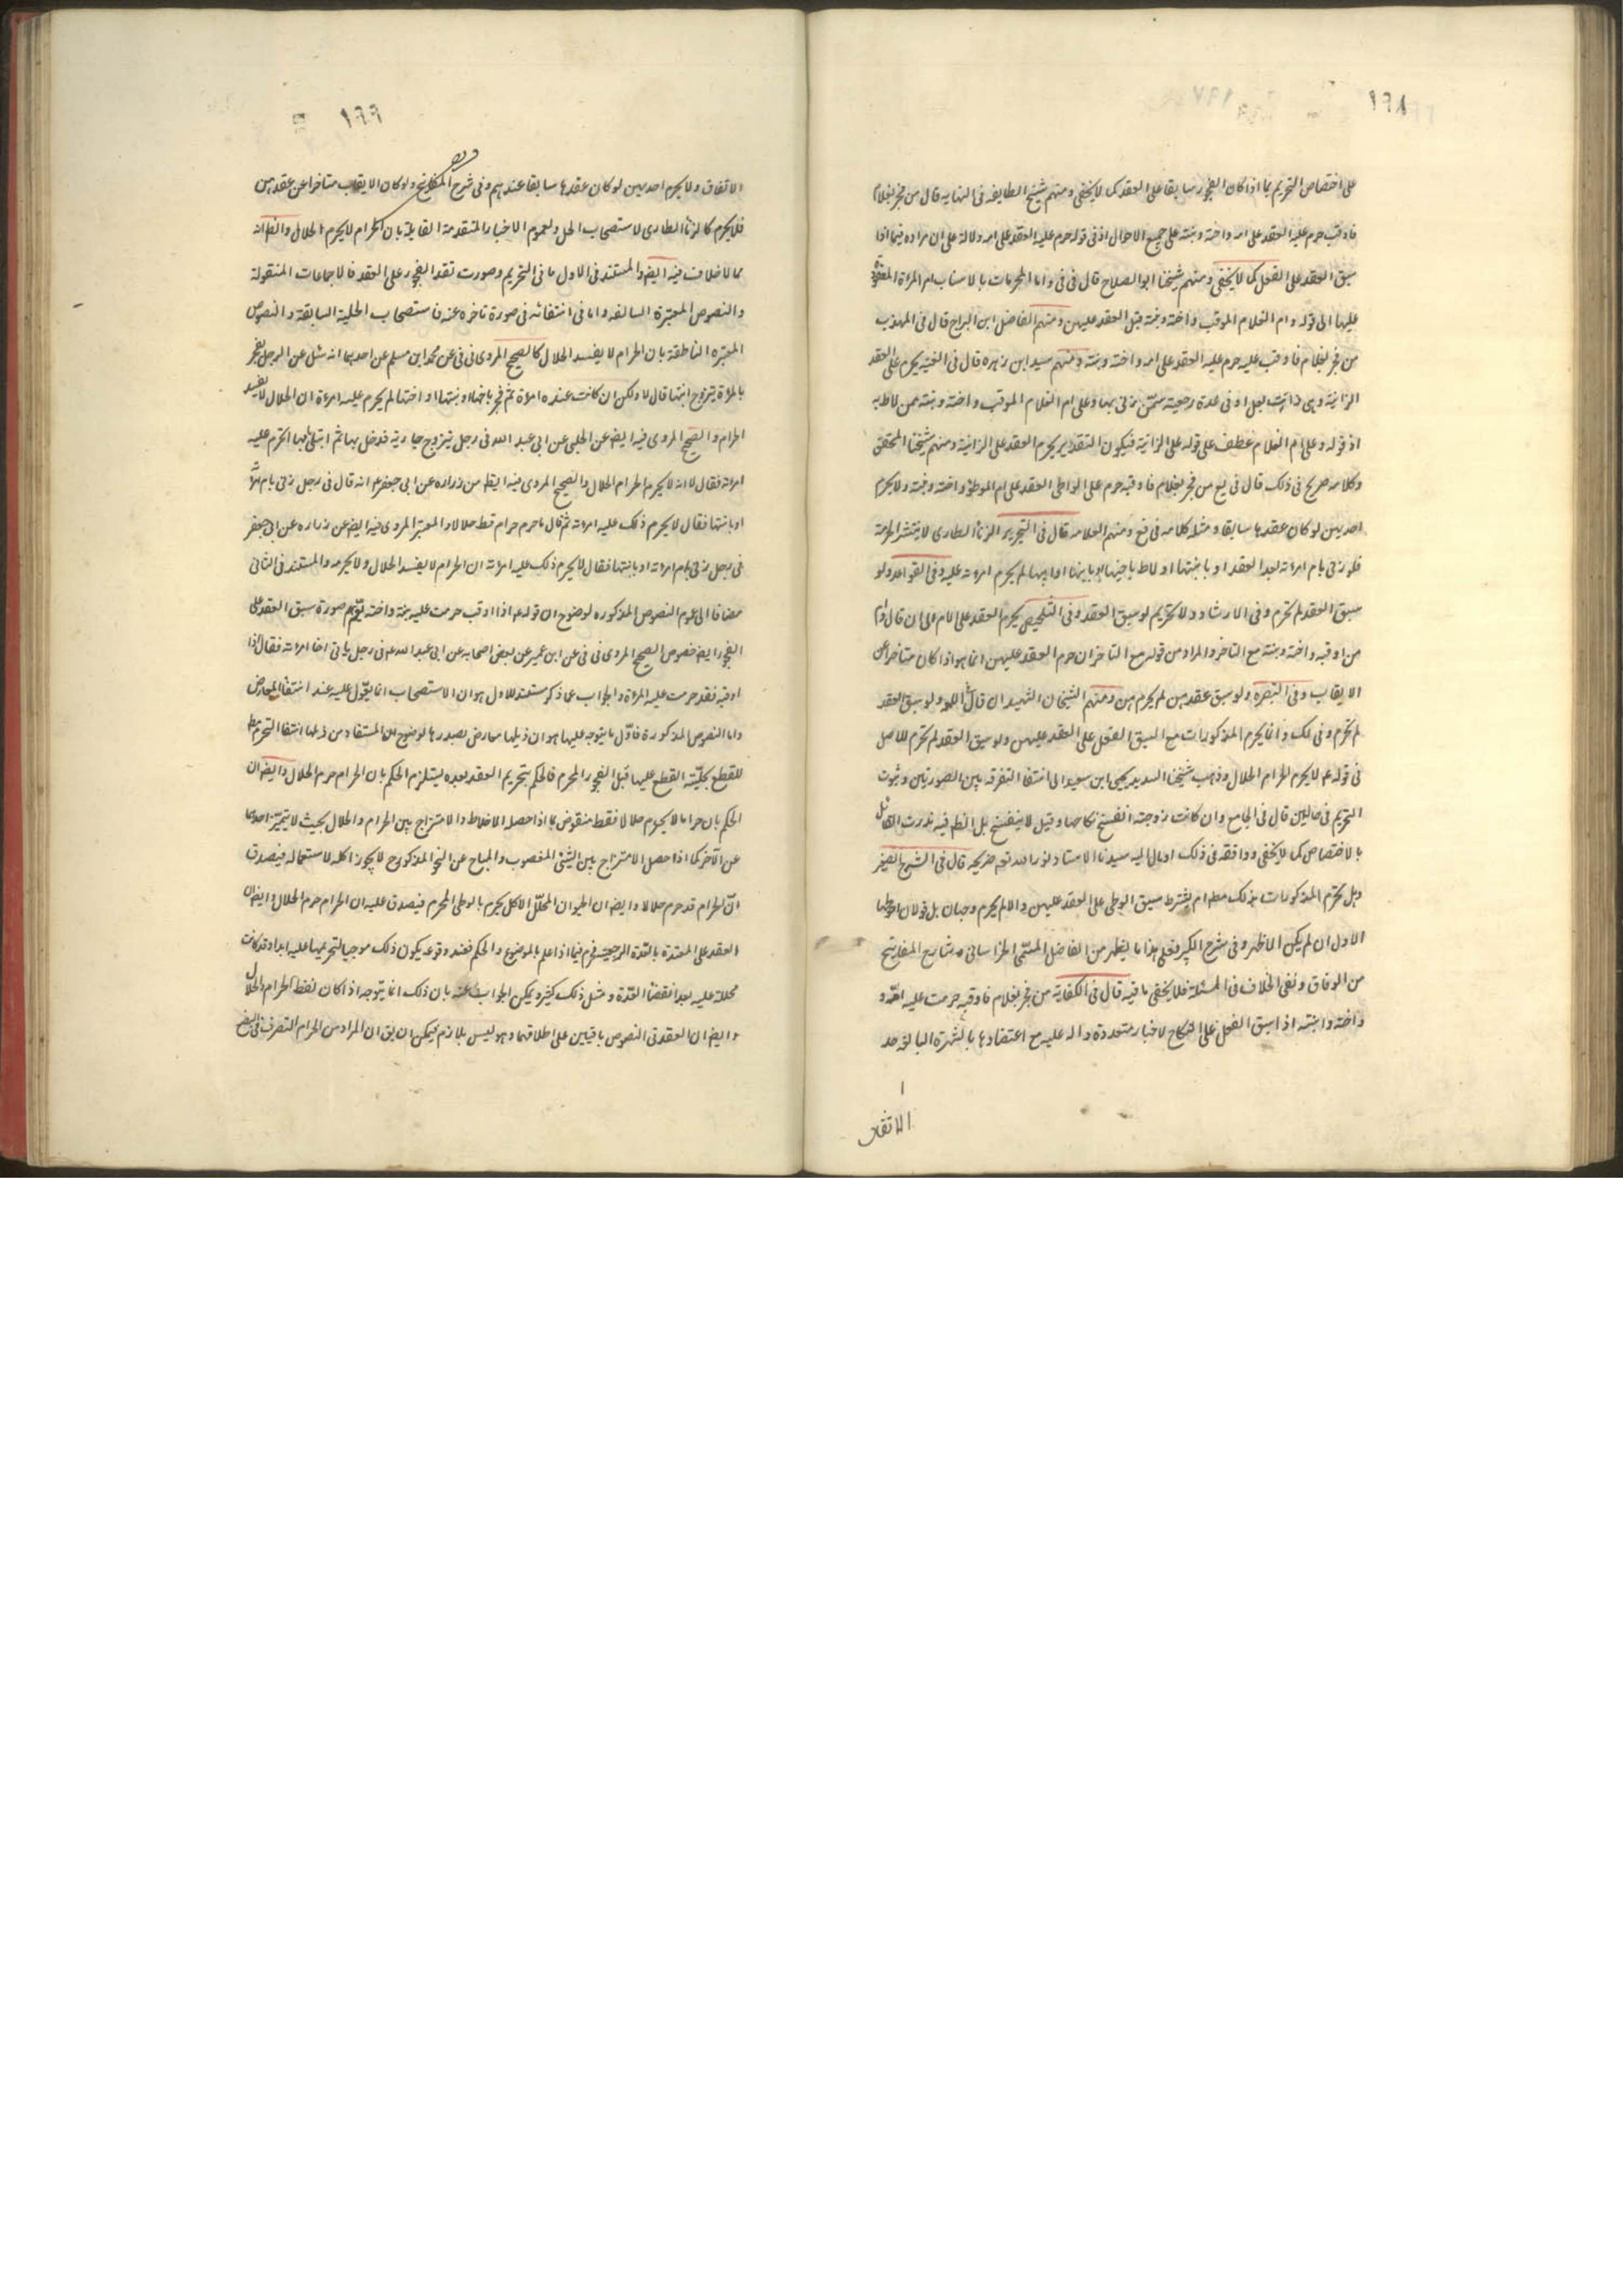 ١٩٨
على اختصاص التحريم بما اذا كان الفجور سابقا على العقد كما لا يخفى ومنهم شيخ الطايفه فى النهايه قال من فجر بغلام
فاوقب حرم عليه العقد على امه واخته وبنته على جميع الاحوال اذ فى قوله حرم عليه العقد على امه دلالة على ان مراده فيما اذا
سبق العقد على الفعل كما لا يخفى ومنهم شيخنا ابو الصلاح قال فى فى واما المحرمات بالاسباب ام المراة المعقود
عليها الى قوله وام الغلام الموقب واخته وبنته قبل العقد عليهن ومنهم الفاضل ابن البراج قال فى المهذب
من فجر بغلام فاوقب عليه حرم عليه العقد على امه واخته وبنته ومنهم سيد ابن زهره قال فى الغنيه يحرم على العقد
الزانية وهى ذات بعل او فى عدة رجعية ممن زنى بها وعلى ام الغلام الموقب واخته وبنته ممن لاط به
اذ قوله وعلى ام الغلام عطف على قوله على الزانية فيكون التقدير يحرم العقد على الزانية ومنهم شيخنا المحقق
وكلامه صريح فى ذلك قال فى يع من فجر بغلام فاوقبه حرم على الواطى العقد على ام الموطؤ واخته وبنته ولا يحرم
احديهن لو كان عقدها سابقا ومثله كلامه فى فع ومنهم العلامه قال فى التحرير الزنا الطارى لا ينتشر الحرمة
فلو زنى بام امراته بعد العقد او بابنتها او لاط باخيها او بابنها او ابيها لم يحرم امراته عليه وفى القواعد ولو
سبق العقد لم تحرم وفى الارشاد ولا تحريم لو سبق العقد وفى التلخيص يحرم العقد على الام الى ان قال وام
من اوقبه واخته وبنته مع التاخر والمراد من قوله مع التاخر ان حرم العقد عليهن انما هو اذا كان متاخرا عن
الايقاب وفى التبصره ولو سبق عقدهن لم يحرمن ومنهم الشيخان الشهيدان قال فى اللمعه ولو سبق العقد
لم تحرم وفى لك وانما يحرم المذكورات مع السبق الفعل على العقد عليهن ولو سبق العقد لم تحرم للاصل
فى قوله ع لا يحرم الحرام الحلال وذهب شيخنا السديد يحيى ابن سعيد الى انتفا التفرقه بين الصورتين وثبوت
التحريم فى حالين قال فى الجامع وان كانت زوجته انفسخ نكاحها وقيل لا ينفسخ بل الظ فيه ندرت القائل
بالاختصاص كما لا يخفى ووافقه فى ذلك او مال اليه سيدنا الاستاد نور الله تع ضريحه قال فى الشرح الصغير
وهل تحرم المذكورات بذلك مط ام يشترط سبق الوطى على العقد عليهن والا لم يحرم وجهان بل قولان احوطهما
الاول ان لم يكن الاظهر وفى شرح الكبير فعلى هذا ما يظهر من الفاضل المتتبع الخراسانى وشارح المفاتيح
من الوفاق ونفى الخلاف فى المسئلة فلا يخفى ما فيه قال فى الكفاية من فجر بغلام فاوقبه حرمت عليه امه
واخته وابنته اذا سبق الفعل على النكاح لاخبار متعددة داله عليه مع اعتضادها بالشهرة البالغه حد
الاتفاق
١٩٩
الاتفاق ولا يحرم احديهن لو كان عقدها سابقا عندهم وفى شرح المفاتيح ولو كان الايقاب متاخرا عن عقدهن
فلا يحرم كالزنا الطارى لاستصحاب الحل ولعموم الاخبار المتقدمة القايلة بان الحرام لا يحرم الحلال والظ انه
مما لا خلاف فيه ايض والمستند فى الاول ما فى التحريم وصورت تقدم الفجور على العقد فالاجماعات المنقولة
والنصوص المعتبرة السالفه واما فى انتفائه فى صورة تاخره عنه فاستصحاب الحلية السابقة والنصوص
المعتبره الناطقة بان الحرام لا يفسد الحلال كالصحيح المروى فى فى عن محمد ابن مسلم عن احدهما انه سئل عن الرجل يفجر
بالمراة يتزوج ابنتها قال لا ولكن ان كانت عنده امراة ثم فجر بامها او بنتها او اختها لم يحرم عليه امراة ان الحلال لا يفسد
الحرام والصحيح المروى فيه ايض عن الحلبى عن ابى عبد الله فى رجل يتزوج جارية فدخل بها ثم ابتلى بامها اتحرم عليه
امراته فقال لا انه لا يحرم الحرام الحلال والصحيح المروى فيه ايض عن زراره عن ابى جعفر ع انه قال فى رجل زنى بام امراته
او بابنتها فقال لا يحرم ذلك عليه امراته ثم قال ما حرم حرام قط حلالا والمعتبر المروى فيه ايض عن زراره عن ابى جعفر
فى رجل زنى بام امراته او بابنتها فقال لا يحرم ذلك عليه امراته ان الحرام لا يفسد الحلال ولا يحرمه والمستند فى الثانى
مضافا الى عموم النصوص المذكوره لوضوح ان قوله ع اذا اوقب حرمت عليه بنته واخته يعم صورة سبق العقد على
الفجور ايض خصوص الصحيح المروى فى فى عن ابن عمير عن بعض اصحابه عن ابى عبد الله ع فى رجل ياتى اخا امراته فقال اذا
اوقبه فقد حرمت عليه المراة والجواب عما ذكر مستند للاول هو ان الاستصحاب انما يعول عليه عند انتفا المعارض
واما النصوص المذكورة فاول ما يتوجه عليها هو ان ذيلها معارض بصدرها لوضوح ان المستفاد من ذيلها انتفا التحريم مط
للقطع بحلية القطع عليها قبل الفجور المحرم فالحكم بتحريم العقد بعده يستلزم الحكم بان الحرام حرم الحلال وايض ان
الحكم بان حراما لا يحرم حلالا فقط منقوض بما اذا حصل الاختلاط والامتزاج بين الحرام والحلال بحيث لا يتميز احدهما
عن الاخر كما اذا حصل الامتزاج بين الشئى المغصوب والمباح عن النحو المذكور ح لا يجوز اكله لاستعماله فيصدق
ان الحرام قد حرم حلالا وايض ان الحيوان المحلل الاكل يحرم بالوطى المحرم فيصدق عليه ان الحرام حرم الحلال وايض ان
العقد على المعتدة بالعدة الرجعية فيما اذا علم بالموضوع والحكم فعند وقوعه يكون ذلك موجبا لتحريمها عليه ابدا وقد كانت
محللة عليه بعد انقضا العدة ومثل ذلك كثير ويمكن الجواب عنه بان ذلك انما يتوجه اذا كان لفظ الحرام والحلال
وايض ان العقد فى النصوص باقيين على اطلاقهما وهو ليس بلازم فيمكن ان يق ان المراد من الحرام التصرف فى البضع